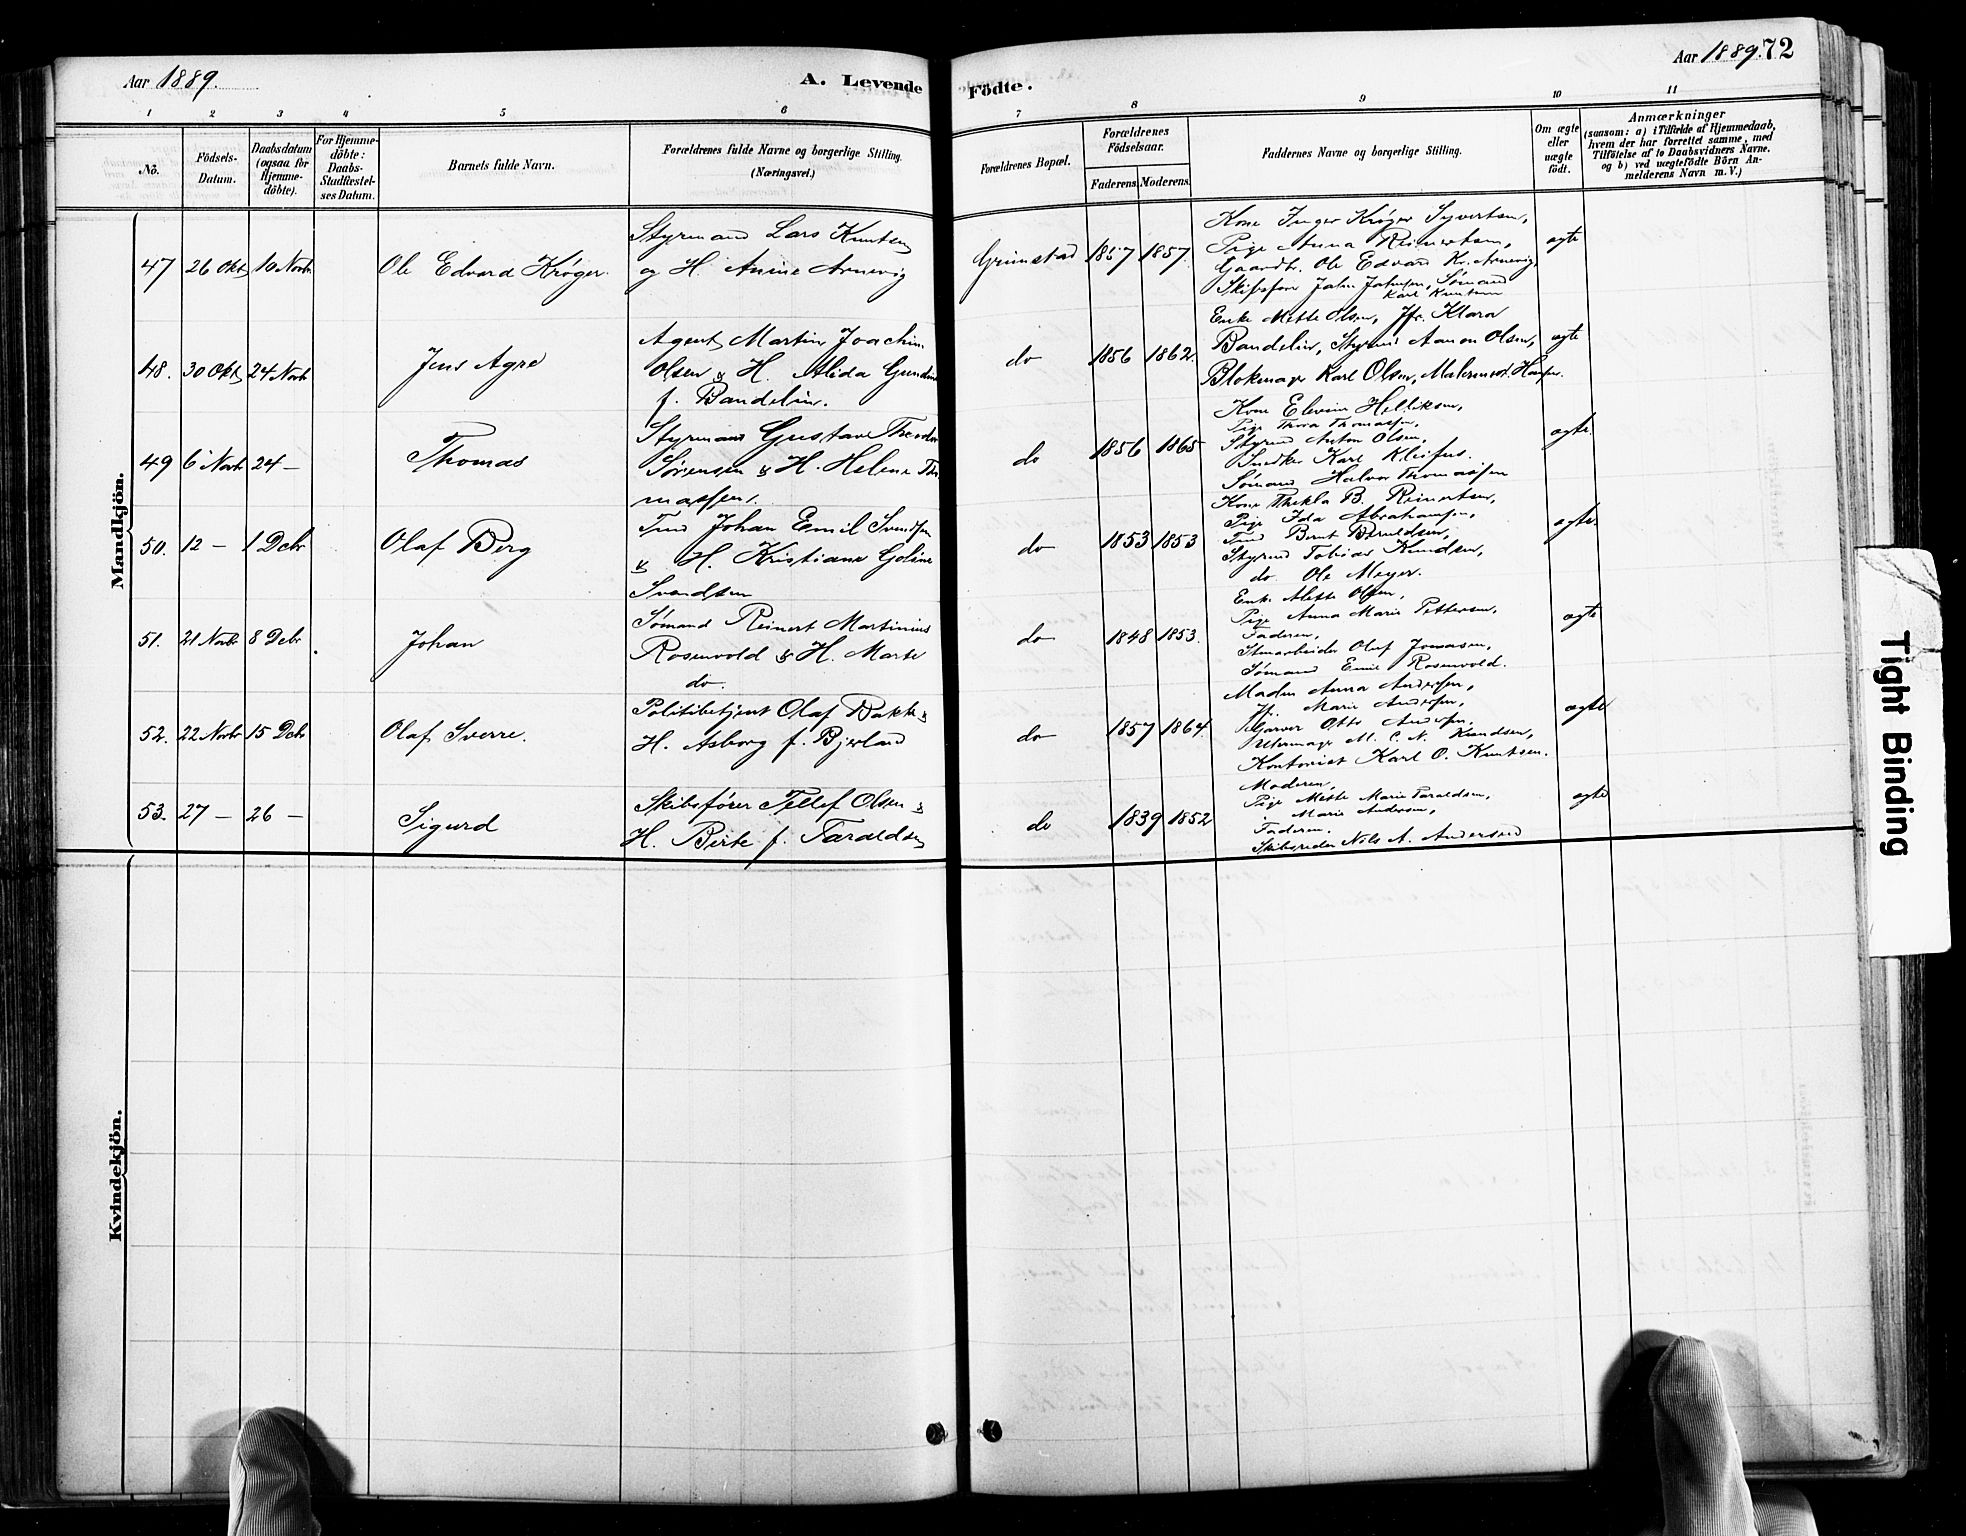 Aar 1889.
A. Levende Födte.
Aar 1889. 72
1 2 3 4 5 6 7 8 9 10 11
No.
Födsels-Datum.
Daabsdatum (ogsaa for Hjemmedöbte).
For Hjemmedöbte: Daabs-Stadfæstelses Datum.
Barnets fulde Navn.
Forældrenes fulde Navne og borgerlige Stilling. (Næringsvei.)
Forældrenes Bopæl.
Forældrenes Födselsaar.
Faderens. Moderens.
Faddernes Navne og borgerlige Stilling.
Om ægte eller uægte födt.
Anmærkninger
(saasom: a) i Tilfælde af Hjemmedaab,
hvem der har forrettet samme, med
Tilföielse af to Daabsvidners Navne.
og b) ved uægtefödte Börn An-
melderens Navn m. V.)
Mandkjön.
47 26 Okt 10 Novbr Ole Edvard Krøger.
Styrmand Lars Knutsen
og H. Anine Arnevig
Grimstad 1857 1857
Kone Inger Krøger Syvertsen,
Pige Anna Reinertsen,
Gaardbr. Ole Edvard Kr. Arnevig,
Skibsfører John Johnsen, Sømand
Karl Knutsen
ægte
48. 30 Okt 24 Novbr Jens Agre
Agent Martin Joachim
Olsen & H. Alida Gundine
f. Bandelin.
do 1856 1862.
Enke Mette Olsen, Jfr. Klara
Bandelin, Styrmd Aanon Olsen,
Blokmager Karl Olsen, Malermest. Hansen.
ægte
49 6 Novbr 24 — Thomas
Styrmand Gustav Theodor
Sørensen & H. Helene Tho
massen.
do 1856 1865
Kone Elevine Helliksen,
Pige Thora Thomassen,
Styrmd Anton Olsen,
Snedker Karl
Sømand Halvor Thomassen
ægte.
50. 12 — 1 Decbr Olaf Berg
Tmd Johan Emil Svendsen
& H. Kristiane Goline
Svendsen
do 1853 1853
Kone Thekla B. Reinertsen,
Pige Ida Abrahamsen,
Tmd Bernt Berntsen,
Styrmd Tobias Knudsen,
do Ole Meyer.
ægte
51. 21 Novbr 8 Decbr Johan
Sømand Reinert Martinius
Rosenvold & H. Marte
do.
do 1848 1853.
Enke Alette Olsen,
Pige Anna Marie Pettersen,
Faderen,
Stenarbeider Oluf Jonassen,
Sømand Emil Rosenvold.
ægte
52. 22 Novbr 15 Decbr Olaf Sverre.
Politibetjent Olaf Bakke &
H. Asborg f. Bjorland
do 1857 1864.
Maden Anna Andersen,
Jfr. Marie Andersen,
Garver Otto Andersen,
Uhrmager M. C. N. Knudsen,
Kontorist Karl O. Knutsen.
ægte
53. 27 — 26 — Sigurd
Skibsfører Tellef Olsen &
H. Birte f. Taraldsen
do 1839 1852
Moderen,
Pige Mette Marie Taraldsen,
„ Marie Andersen,
Faderen.
Skibsreder Nils A. Andersen
ægte
Kvindekjön.
Tight Binding